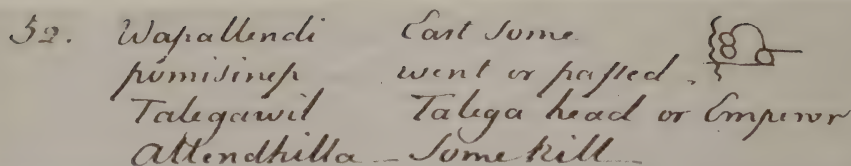 52. Wapallendi East some
pomisinep went or passed.
Talegawil Talega head or Emperor
allendhilla - Some kill